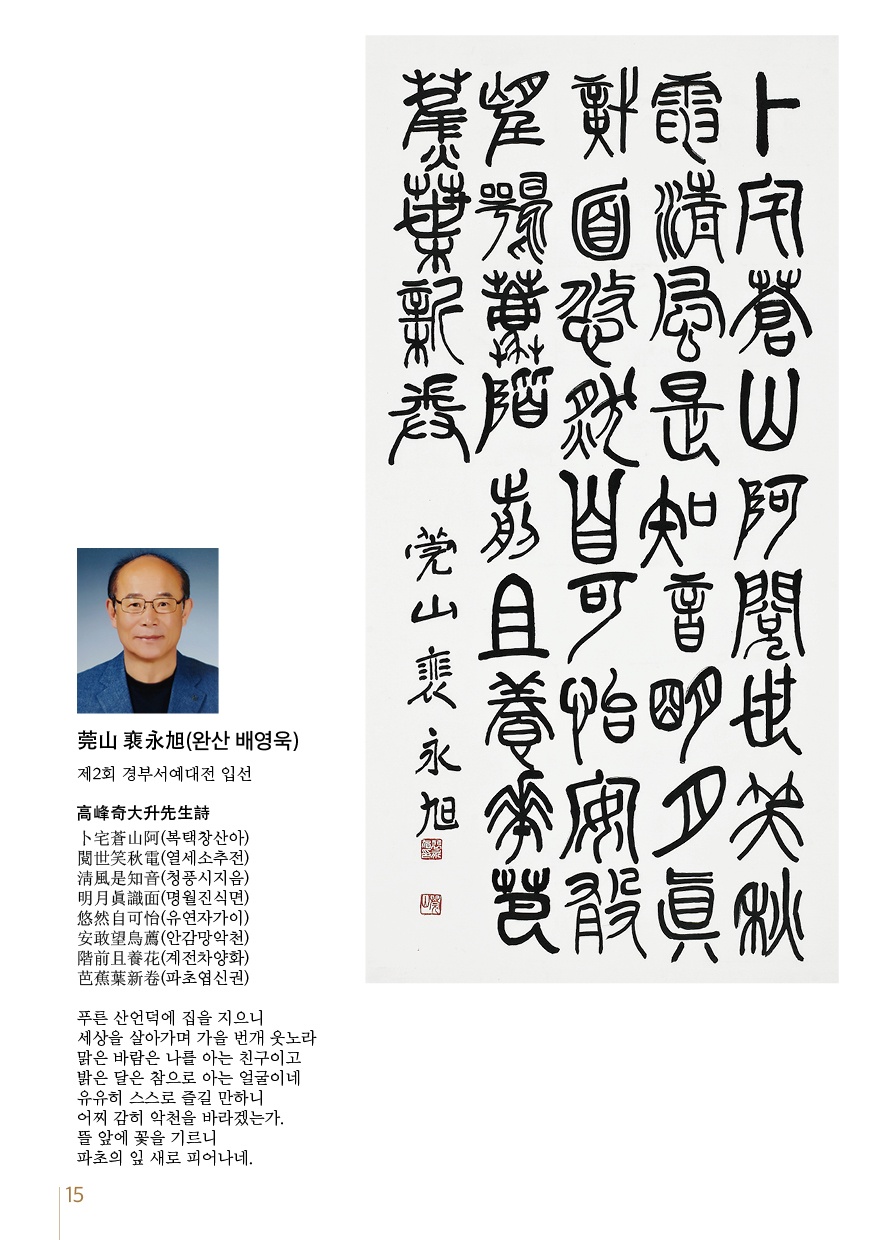 卜宅蒼山阿閱世笑秋
電淸風是知音明月眞
識面悠然自可怡安敢
望鶚薦階前且養花芭
蕉葉新卷 莞山裵永旭
莞山 裵永旭(완산 배영욱)
제2회 경부서예대전 입선
高峰奇大升先生詩
卜宅蒼山阿(복택창산아)
閱世笑秋電(열세소추전)
淸風是知音(청풍시지음)
明月眞識面(명월진식면)
悠然自可怡(유연자가이)
安敢望烏薦(안감망악천)
階前且養花(계전차양화)
芭蕉葉新卷(파초엽신권)
푸른 산언덕에 집을 지으니
세상을 살아가며 가을 번개 웃노라
맑은 바람은 나를 아는 친구이고
밝은 달은 참으로 아는 얼굴이네
유유히 스스로 즐길 만하니
어찌 감히 악천을 바라겠는가.
뜰 앞에 꽃을 기르니
파초의 잎 새로 피어나네.
15